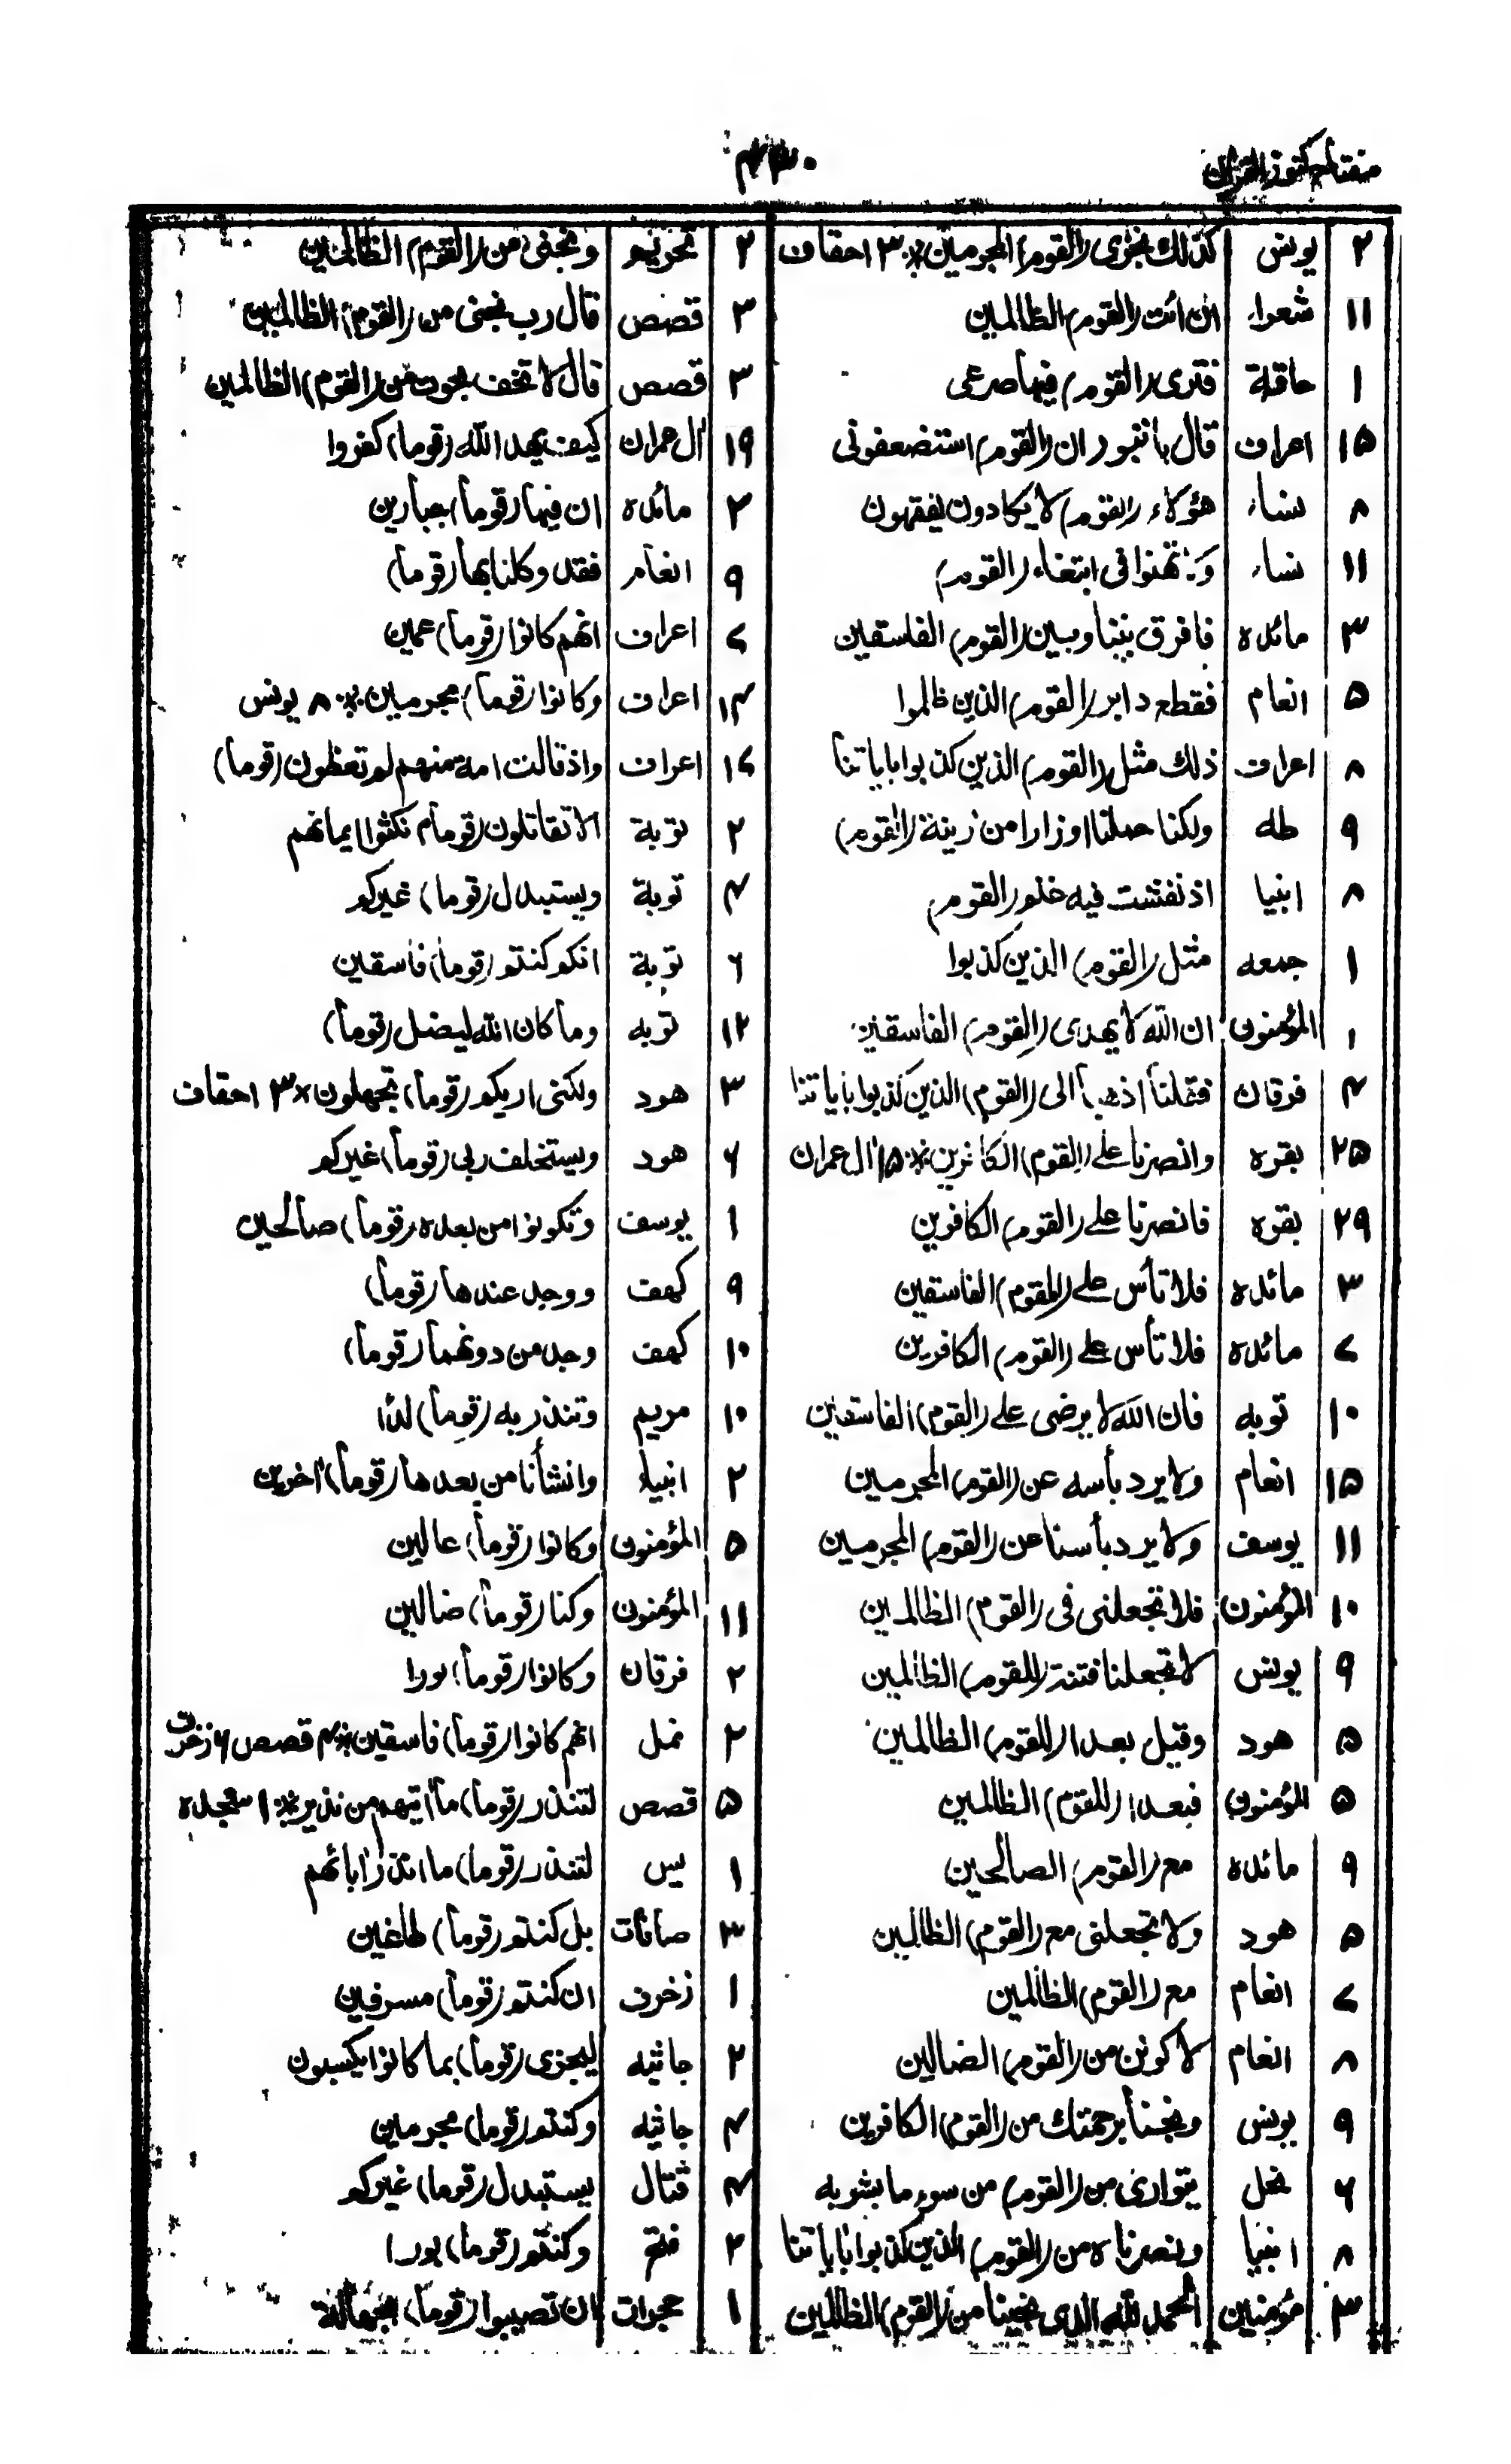 مفتاح كنوز القران
۴۳۰
۲ يونس كذلك نجزى (القوم) المجرمين * ۳ احقاف
۱۱ شعراء ان ائت (القوم) الظالمين
۱ حاقة فترى (القوم) فيها صرعى
۱۵ اعراف قال يا ان (القوم) استضعفونى
۸ نساء هؤلاء (القوم) لا يكادون يفقهون
۱۱ نساء تهنوا فى ابتغاء (القوم)
۳ مائده فافرق بيننا وبين (القوم) الفاسقين
۵ انعام فقطع دابر (القوم) الذين ظلموا
۸ اعراف ذلك مثل (القوم) الذين كذبوا باياتنا
۹ طه ولكنا حملنا اوزارا من زينة (القوم)
۸ انبيا اذ نفشت فيه غنم (القوم)
۱ جمعه مثل (القوم) الذين كذبوا
۱ المؤمنون ان الله لا يهدى (القوم) الفاسقين
۴ فرقان فقلنا اذهبا الى (القوم) الذين كذبوا باياتنا
۲۵ بقره وانصرنا على (القوم) الكافرين * ۱۵ ال عمران
۲۹ بقره فانصرنا على (القوم) الكافرين
۳ مائده فلا تأس على (القوم) الفاسقين
۷ مائده فلا تأس على (القوم) الكافرين
۱۰ توبه فان الله لا يرضى على (القوم) الفاسقين
۱۵ انعام ولا يرد بأسه عن (القوم) المجرمين
۱۱ يوسف ولا يرد بأسنا عن (القوم) المجرمين
۱۰ المؤمنون فلا تجعلنى فى (القوم) الظالمين
۹ يونس لا تجعلنا فتنة (للقوم) الظالمين
۵ هود وقيل بعدا (للقوم) الظالمين
۵ المؤمنون فبعدا (للقوم) الظالمين
۹ مائده مع (القوم) الصالحين
۵ هود ولا تجعلنى مع (القوم) الظالمين
۷ انعام مع (القوم) الظالمين
۸ انعام لاكونن من (القوم) الضالين
۹ يونس ونجنا برحمتك من (القوم) الكافرين
۶ نحل يتوارى من (القوم) من سوء ما بشر به
۸ انبيا ونصرناه من (القوم) الذين كذبوا باياتنا
۳ مؤمنين الحمد لله الذى نجينا من (القوم) الظالمين
۲ تحريم ونجنى من (القوم) الظالمين
۳ قصص قال رب نجنى من (القوم) الظالمين
۳ قصص قال لا تخف نجوت من (القوم) الظالمين
۱۹ ال عمران كيف يهد الله (قوما) كفروا
۲ مائده ان فيها (قوما) جبارين
۹ انعام فقد وكلنا بها (قوما)
۷ اعراف انهم كانوا (قوما) عمين
۱۴ اعراف وكانوا (قوما) مجرمين * ۸ يونس
۱۷ اعراف واذ قالت امة منهم لم تعظون (قوما)
۲ توبة الا تقاتلون (قوما) نكثوا ايمانهم
۴ توبة ويستبدل (قوما) غيركم
۶ توبة انكم كنتم (قوما) فاسقين
۱۲ توبه وما كان الله ليضل (قوما)
۳ هود ولكنى اريكم (قوما) تجهلون * ۳ احقاف
۶ هود ويستخلف ربى (قوما) غيركم
۱ يوسف وتكونوا من بعده (قوما) صالحين
۹ كهف ووجد عندها (قوما)
۱۰ كهف وجد من دونهما (قوما)
۱۰ مريم وتنذر به (قوما) لدا
۲ انبياء وانشأنا من بعدها (قوما) اخرين
۵ المؤمنون وكانوا (قوما) عالين
۱۱ المؤمنون وكنا (قوما) ضالين
۲ فرقان وكانوا (قوما) بورا
۲ نمل انهم كانوا (قوما) فاسقين * ۴ قصص ۶ زخرف
۵ قصص لتنذر (قوما) ما اتيهم من نذير * ۱ سجده
۱ يس لتنذر (قوما) ما انذر اباؤهم
۳ صافات بل كنتم (قوما) طاغين
۱ زخرف ان كنتم (قوما) مسرفين
۲ جاثيه ليجزى (قوما) بما كانوا يكسبون
۴ جاثيه وكنتم (قوما) مجرمين
۴ قتال يستبدل (قوما) غيركم
۲ فتح وكنتم (قوما) بورا
۱ حجرات ان تصيبوا (قوما) بجهالة